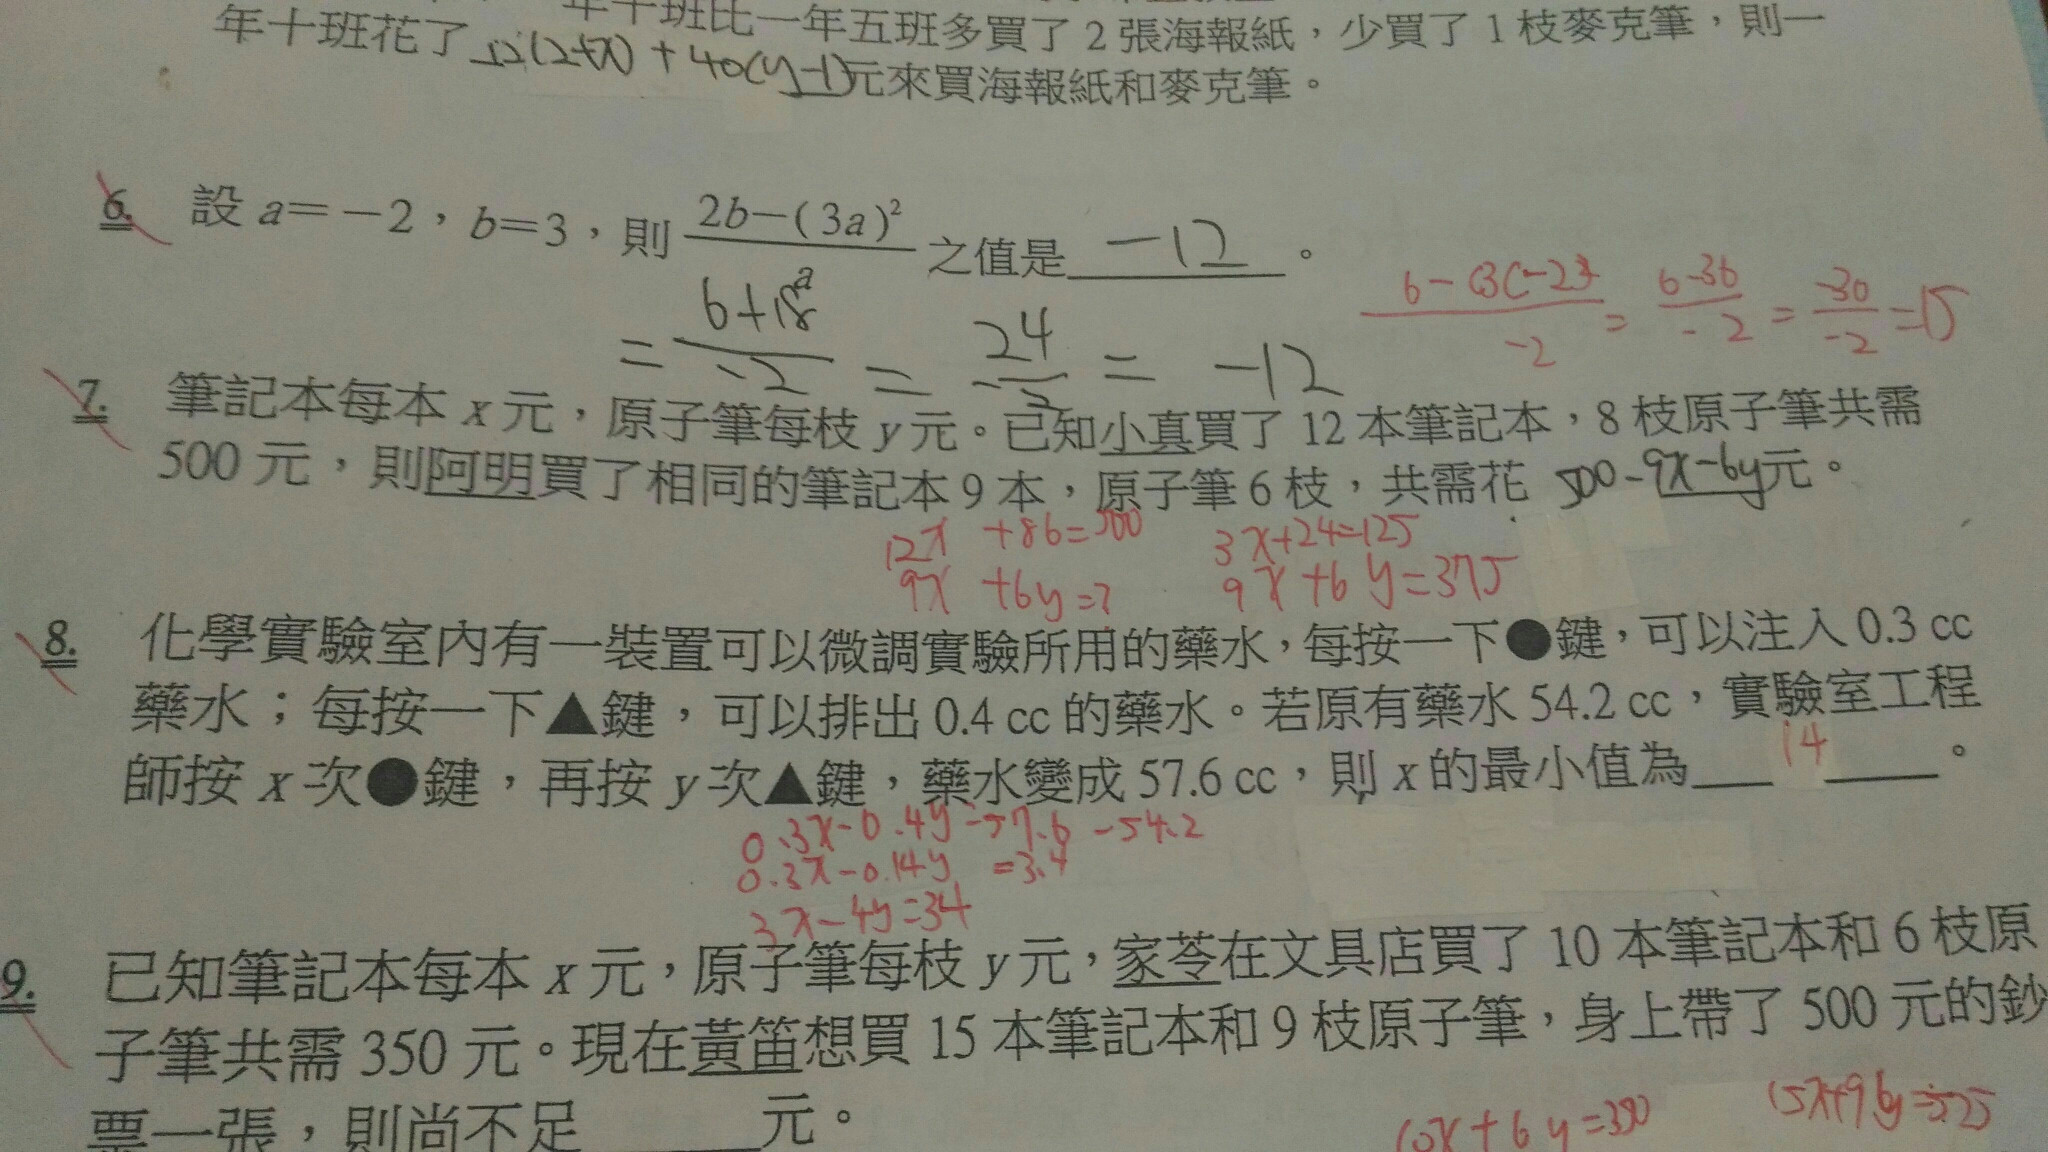 年十班比一年五班多買了2張海報紙，少買了1枝麥克筆，則一
年十班花了12(2+x)+40(y-1)元來買海報紙和麥克筆。
6. 設a=-2，b=3，則 2b-(3a)² / a 之值是 -12 。
= 6+18 / -2 = 24 / -2 = -12
6-(3(-2))² / -2 = 6-36 / -2 = -30 / -2 = 15
7. 筆記本每本x元，原子筆每枝y元。已知小真買了12本筆記本，8枝原子筆共需
500元，則阿明買了相同的筆記本9本，原子筆6枝，共需花 500-9x-6y元。
12x +86=500 3x+24=125
9x +6y=? 9x+6y=375
8. 化學實驗室內有一裝置可以微調實驗所用的藥水，每按一下●鍵，可以注入0.3 cc
藥水；每按一下▲鍵，可以排出0.4 cc的藥水。若原有藥水54.2 cc，實驗室工程
師按x次●鍵，再按y次▲鍵，藥水變成57.6 cc，則x的最小值為 14 。
0.3x-0.4y=57.6-54.2
0.3x-0.14y =3.4
3x-4y=34
9. 已知筆記本每本x元，原子筆每枝y元，家苓在文具店買了10本筆記本和6枝原
子筆共需350元。現在黃笛想買15本筆記本和9枝原子筆，身上帶了500元的鈔
票一張，則尚不足 元。
10x+6y=350 15x+9y=525